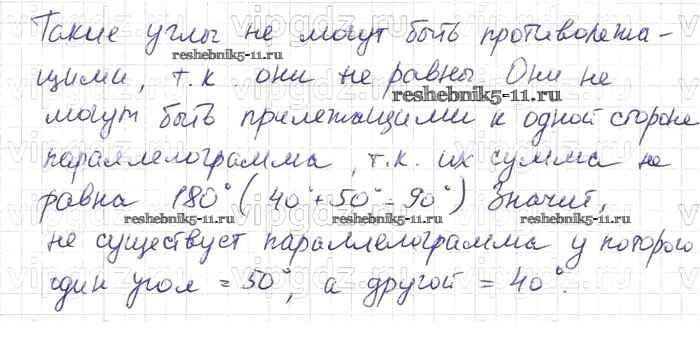 Такие углы не могут быть противолежа-
reshebnik5-11.ru
щими, т.к они не равны Они не
reshebnik5-11.ru
могут быть прилежащими к одной стороне
параллелограмма, т.к. их сумма не
равна 180° (40°+50°=90°) Значит,
reshebnik5-11.ru reshebnik5-11.ru reshebnik5-11.ru
не существует параллелограмма у которого
один угол = 50°, а другой = 40°.